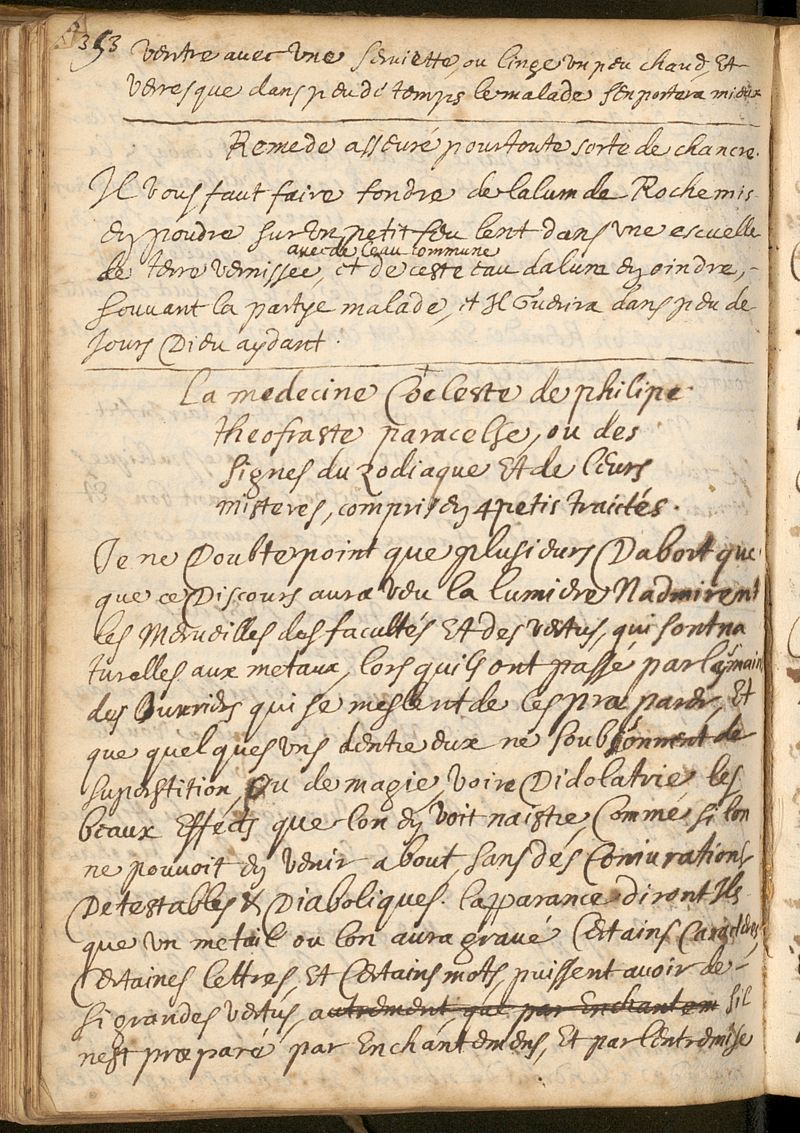 353
ventre avec une serviette, ou linge un peu chaud, Et
verres que dans peu de temps le malade s'en portera mieux
Remede asseuré pour toute sorte de chancre.
Il vous faut faire fondre de lalum de Roche mis
en poudre sur un petit feu lent dans une escuelle
de terre vernissee, avec de leau commune et de ceste eau dalum en oindre,
souvant la partye malade, et Il Guerira dans peu de
Jours Dieu aydant.
La medecine Cœleste de philipe
theofraste paracelse, ou des
signes du zodiaque Et de leurs
misteres, compris en 4 petis traictés.
Je ne Doubte point que plusieurs Dabort que
que ce Discours aura veu la lumiere Nadmirent
les Merveilles des facultés Et des vertus, qui sont na
turelles aux metaux, lors quils ont passé par les mains
des Ouvriers qui se meslent de les præparer, Et
que quelques uns dentre eux ne soubsonnent de
superstition, Ou de magie, voire Didolatrie les
beaux Effects que lon en voit naistre, Comme si lon
ne pouvoit en venir a bout, sans des Coniurations
Detestables & Diaboliques. lapparance diront Ils
que un metail ou lon aura gravé Certains Caracteres,
Certaines lettres, Et Certains mots, puissent avoir de
si grandes vertus, autrement, que par Enchantem sil
nest præparé par Enchantemens, Et par lentremise